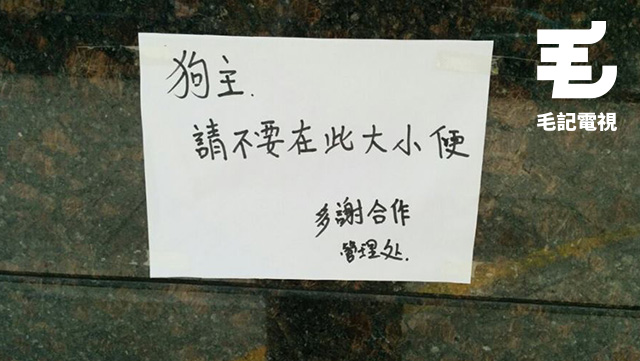 狗主.
請不要在此大小便
多謝合作
管理处.
毛
毛記電視